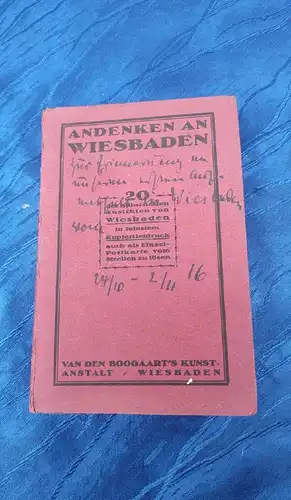 ANDENKEN AN
WIESBADEN
zur Erinnerung an
unseren
Wiesbaden
vom
20
Ansichten von
Wiesbaden
in feinstem
Kupfertiefdruck
auch als Einzel-
Postkarte vom
Streifen zu lösen
24/10 - 2/11 16
VAN DEN BOOGAART'S KUNST-
ANSTALT / WIESBADEN